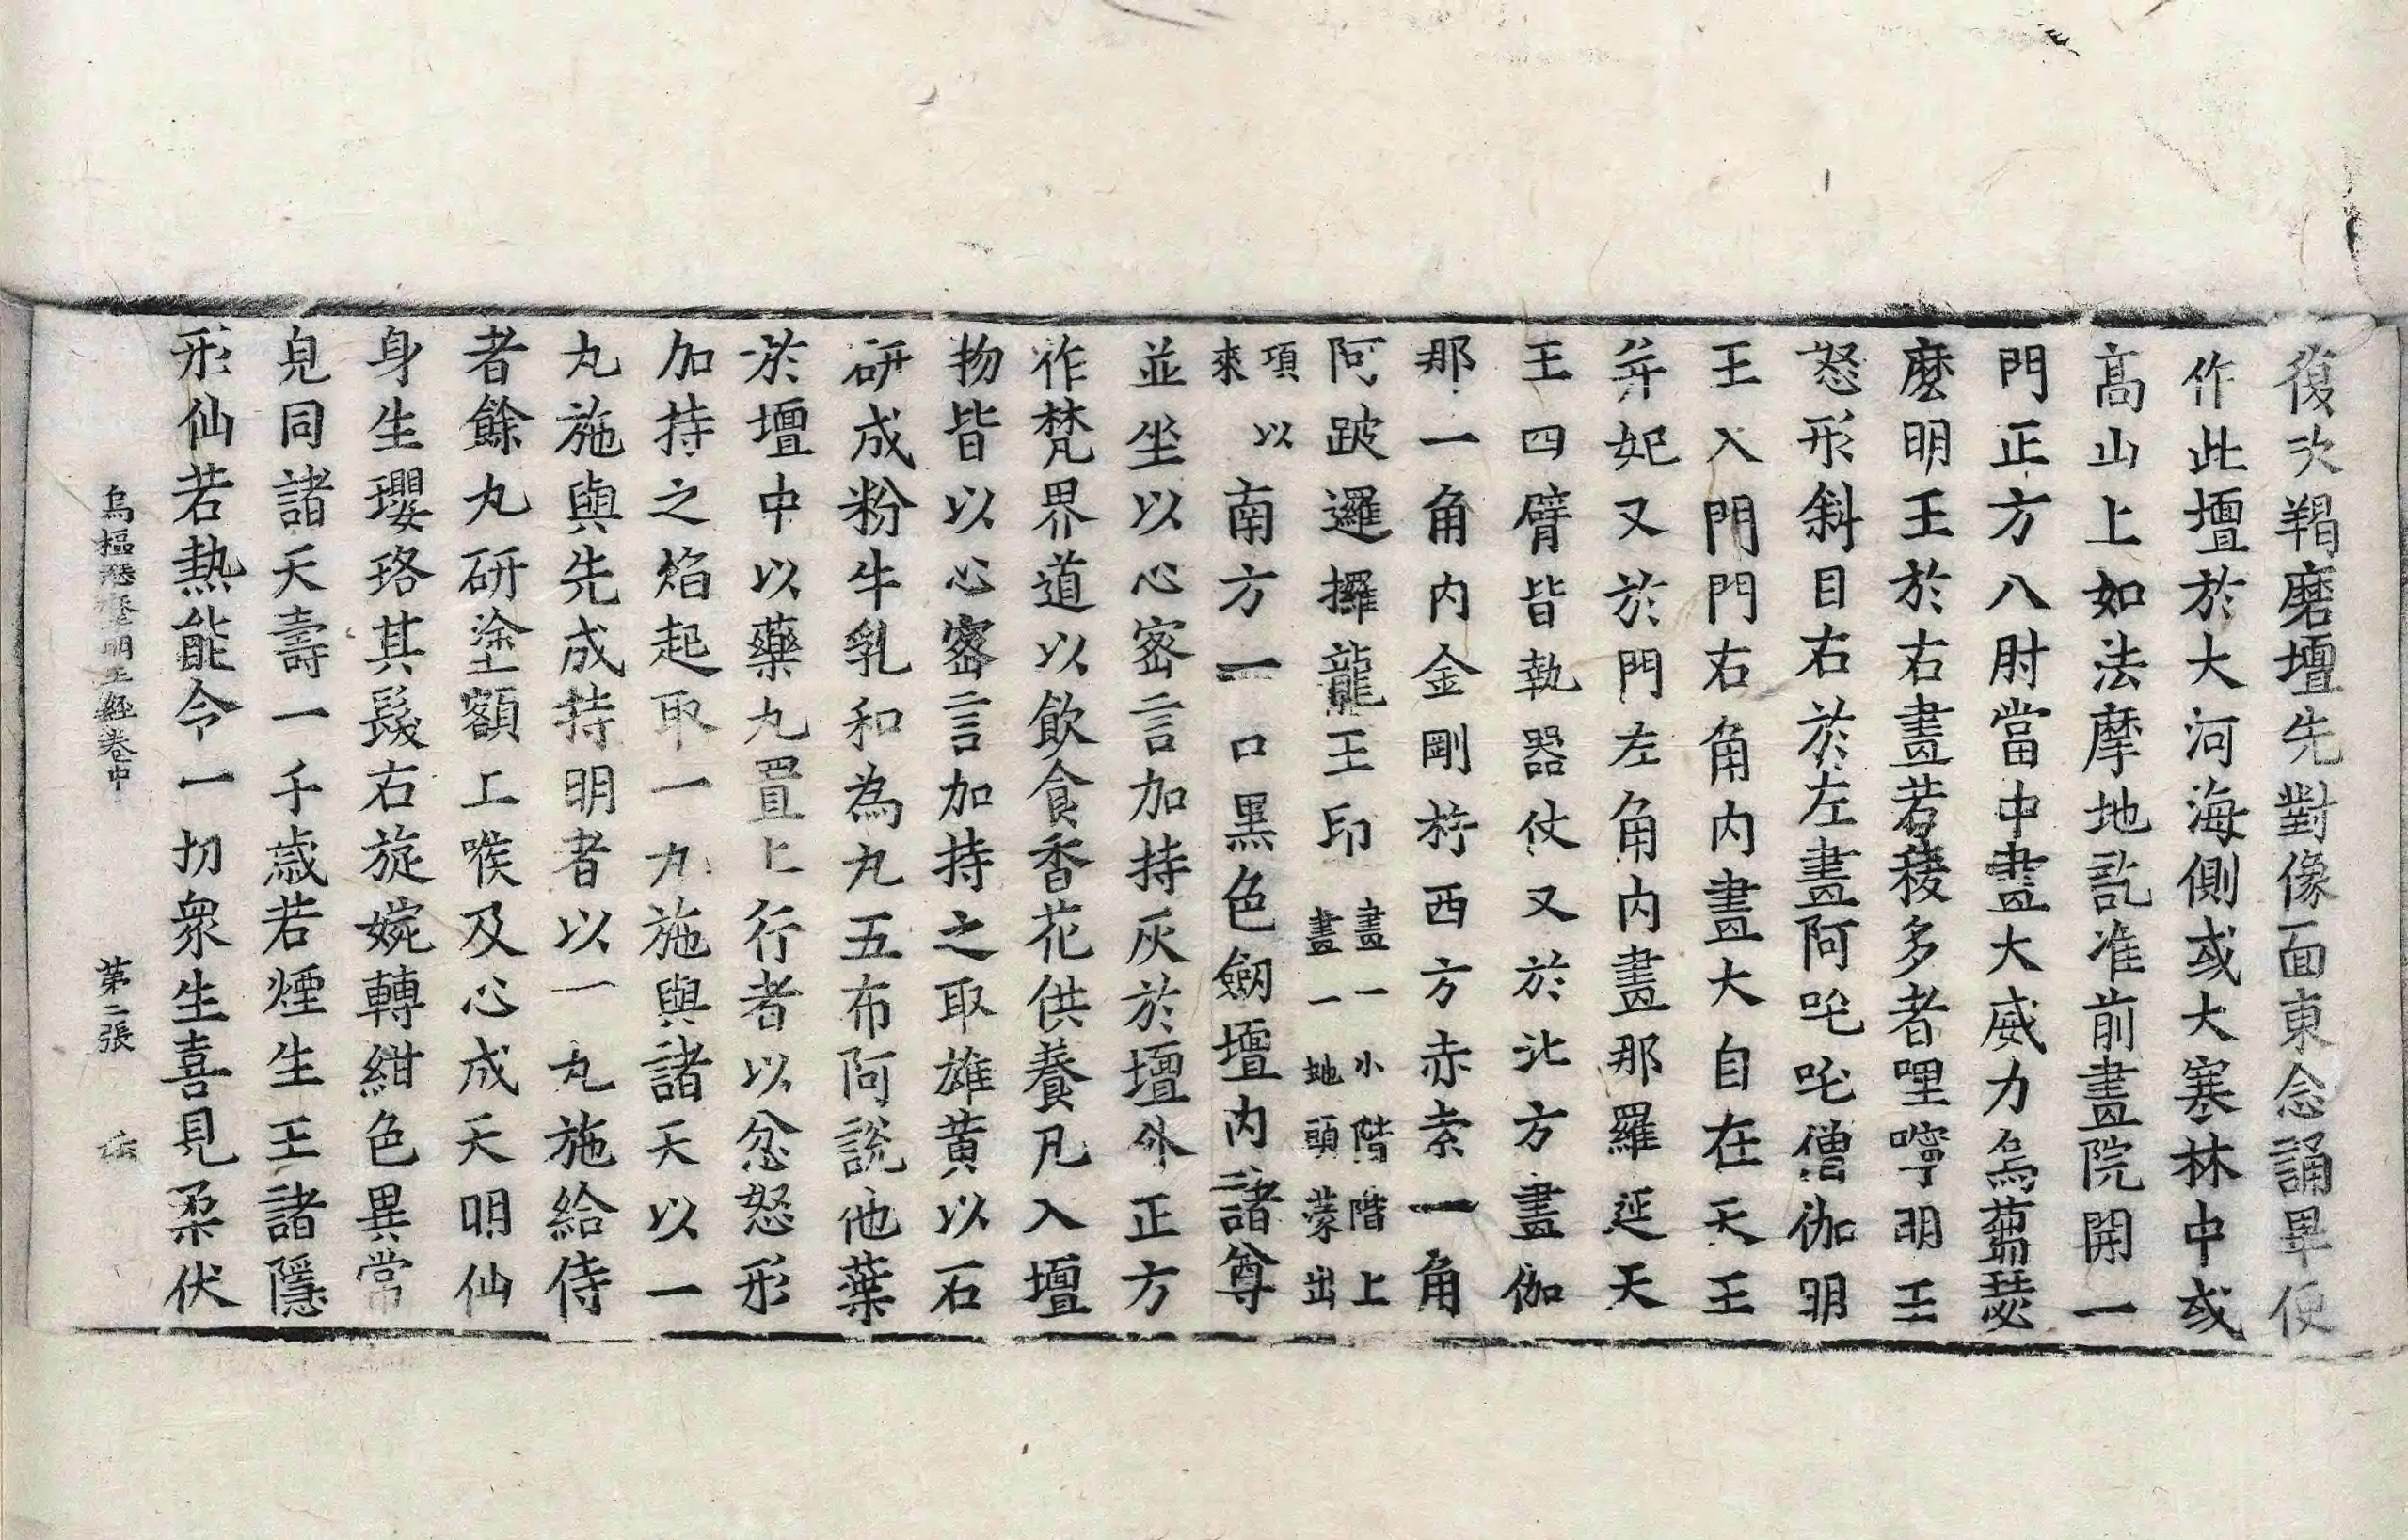 復次羯磨壇先對像面東念誦畢便
作此壇於大河海側或大寒林中或
髙山上如法摩地訖准前畫院開一
門正方八肘當中畫大威力烏蒭瑟
麼明王於右畫若稜多者哩嚀明王
怒形斜目右於左畫阿吒吒僧伽明
王入門門右角內畫大自在天王
并妃又於門左角内畫那羅延天
王四臂皆執器仗又於北方畫伽
那一角内金剛杵西方赤索一角
阿跛邏攞龍王印畫一小階階上畫一地頭蒙出
項以來南方一口黒色劒壇内諸尊
並坐以心密言加持灰於壇外正方
作梵界道以飲食香花供養凡入壇
物皆以心密言加持之取雄黄以石
研成粉牛乳和為丸五布阿說他葉
於壇中以藥丸置上行者以忿怒形
加持之焰起取一丸施與諸天以一
丸施與先成持明者以一丸施給侍
者餘丸研塗額上喉及心成天明仙
身生瓔珞其髮右旋婉轉紺色異常
皃同諸天壽一千歳若煙生王諸隱
形仙若熱能令一切衆生喜見柔伏
烏樞瑟麼明王經卷中 第二張